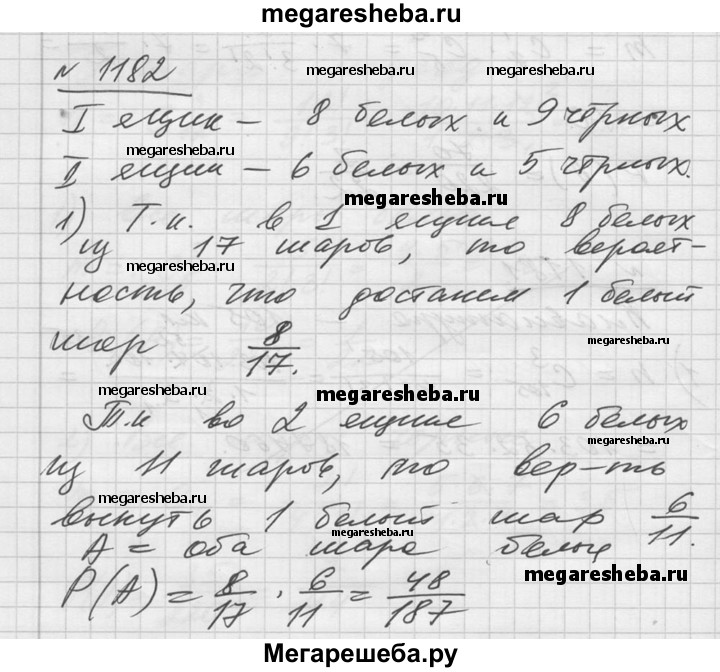 megaresheba.ru
№ 1182
megaresheba.ru megaresheba.ru
I ящик – 8 белых и 9 чёрных
megaresheba.ru
II ящик – 6 белых и 5 чёрных.
megaresheba.ru
1) Т.к. в 1 ящике 8 белых
из 17 шаров, то вероят-
megaresheba.ru
ность, что достанем 1 белый
шар 8/17.
megaresheba.ru
megaresheba.ru
Т.к во 2 ящике 6 белых
megaresheba.ru
из 11 шаров, то вер-ть
megaresheba.ru
вынуть 1 белый шар 6/11.
megaresheba.ru
A = оба шара белые
megaresheba.ru
P(A) = 8/17 · 6/11 = 48/187
Мегарешеба.ру